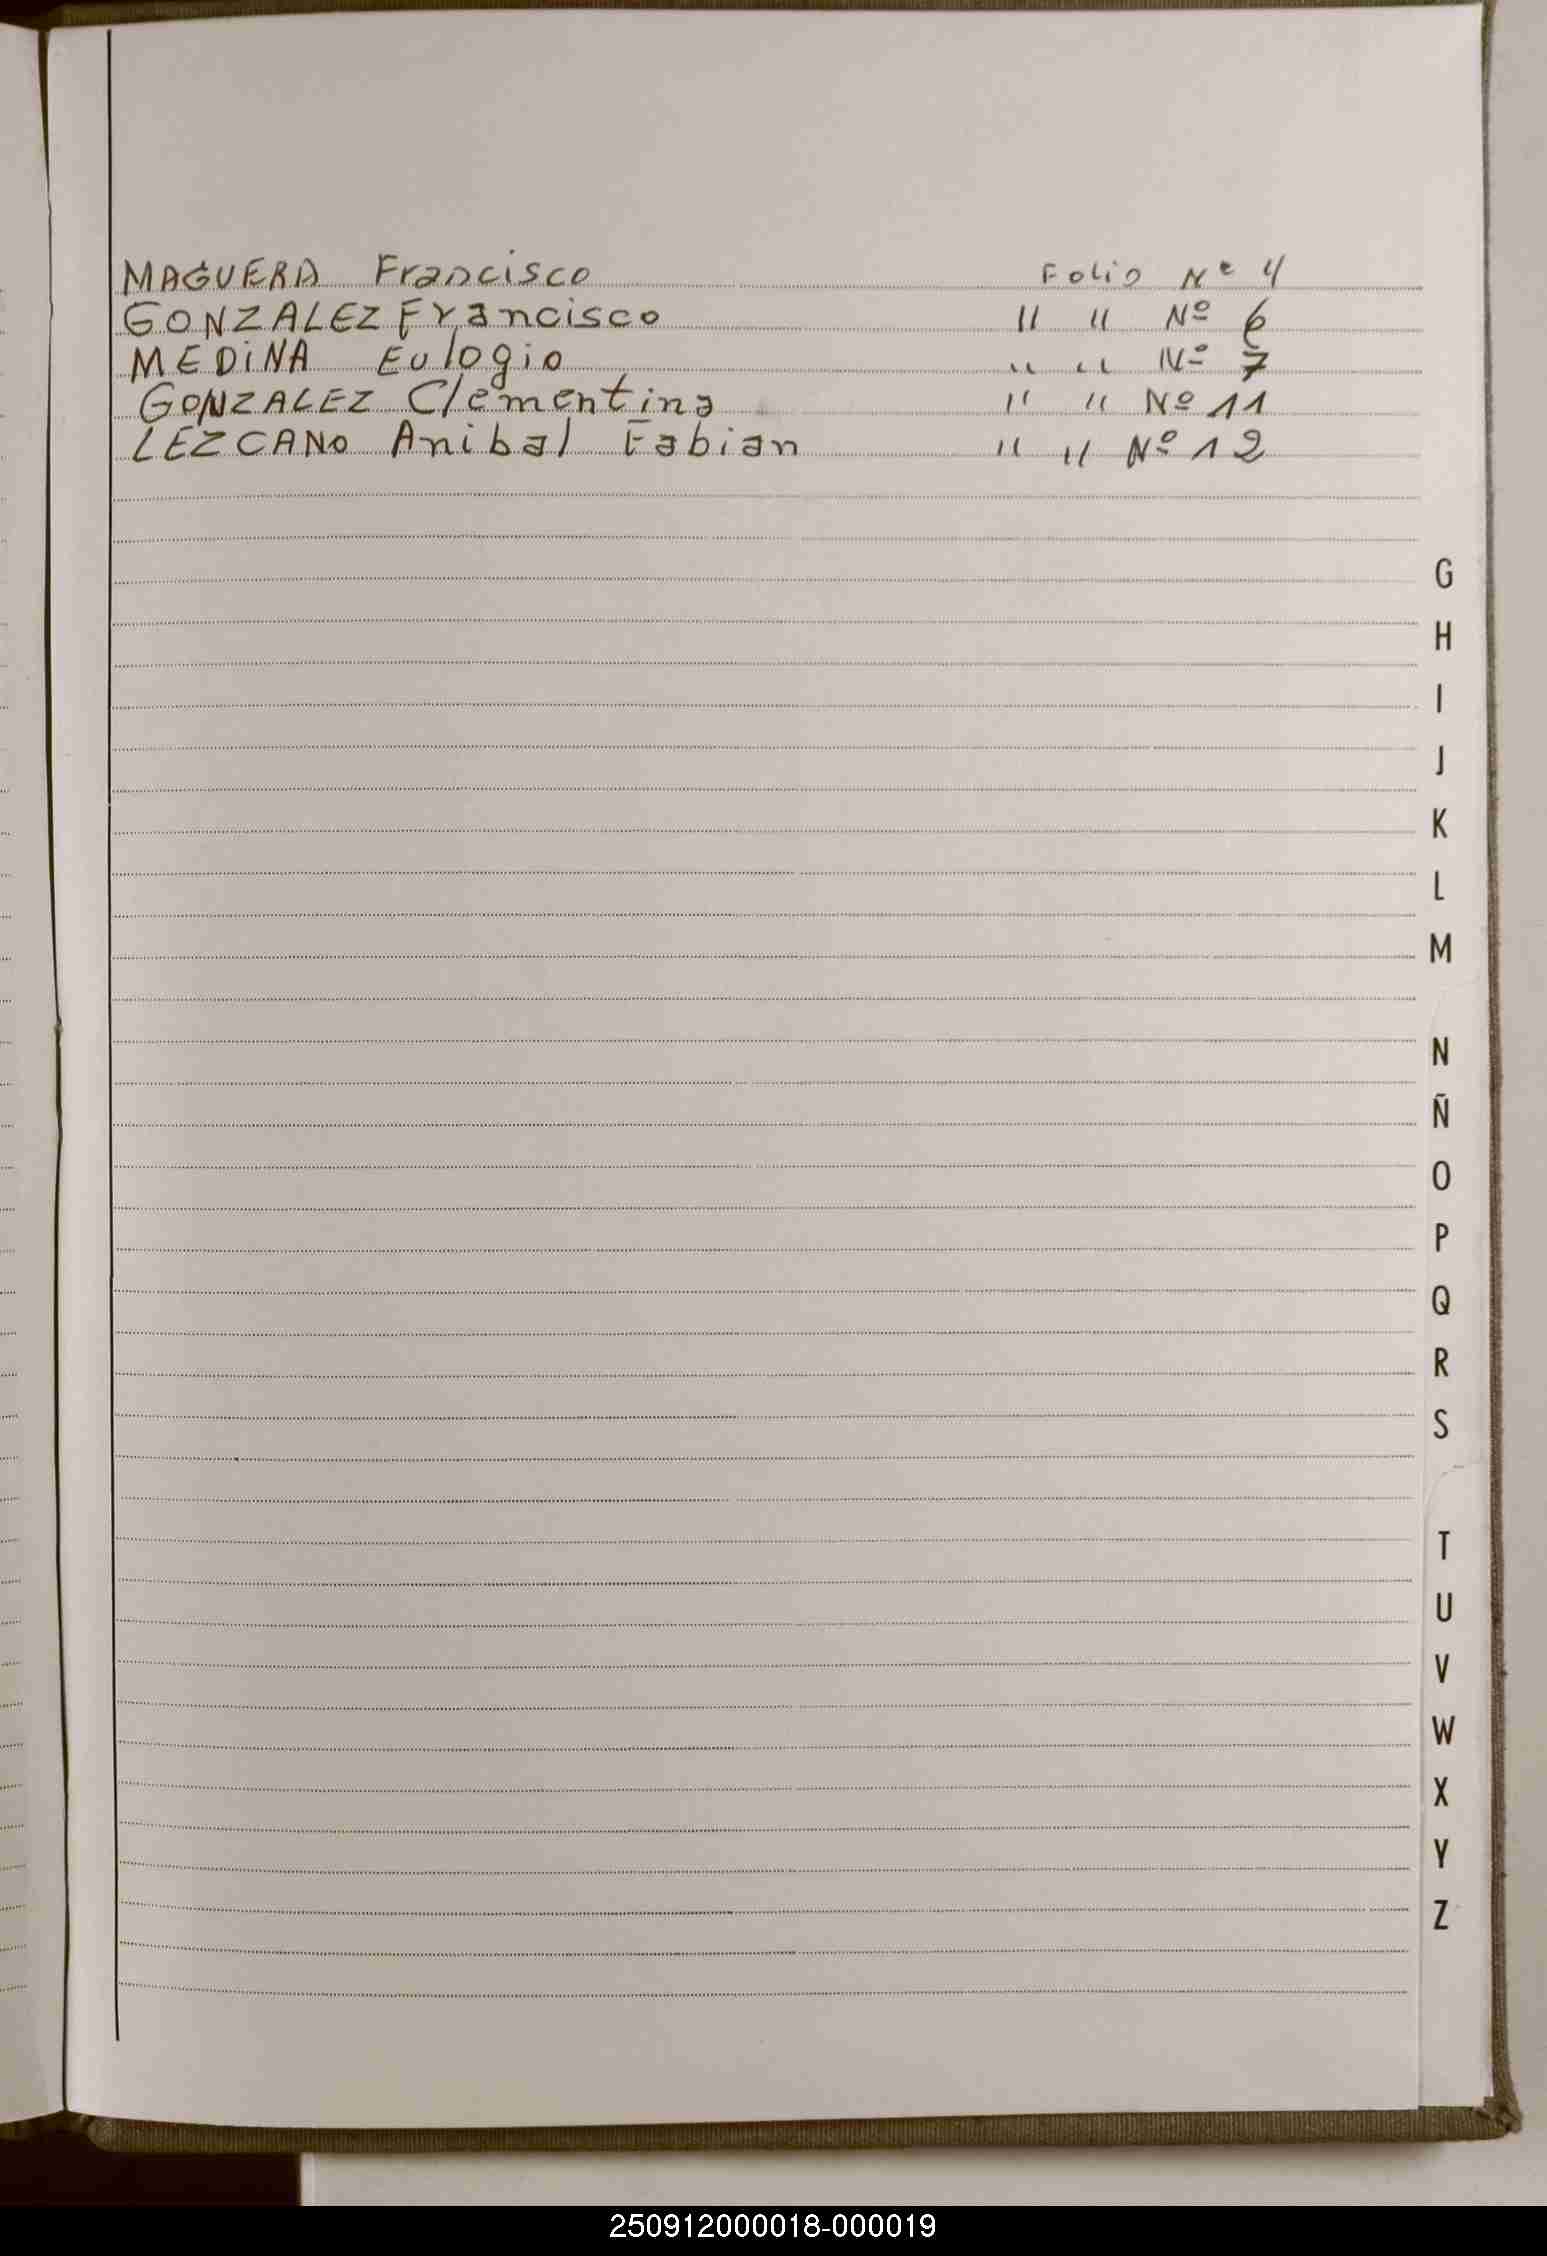 MAGUERA Francisco Folio Nº 4
GONZALEZ Francisco " " Nº 6
MEDINA Eulogio " " Nº 7
GONZALEZ Clementina " " Nº 11
LEZCANO Anibal Fabian " " Nº 12
G
H
I
J
K
L
M
N
Ñ
O
P
Q
R
S
T
U
V
W
X
Y
Z
250912000018-000019